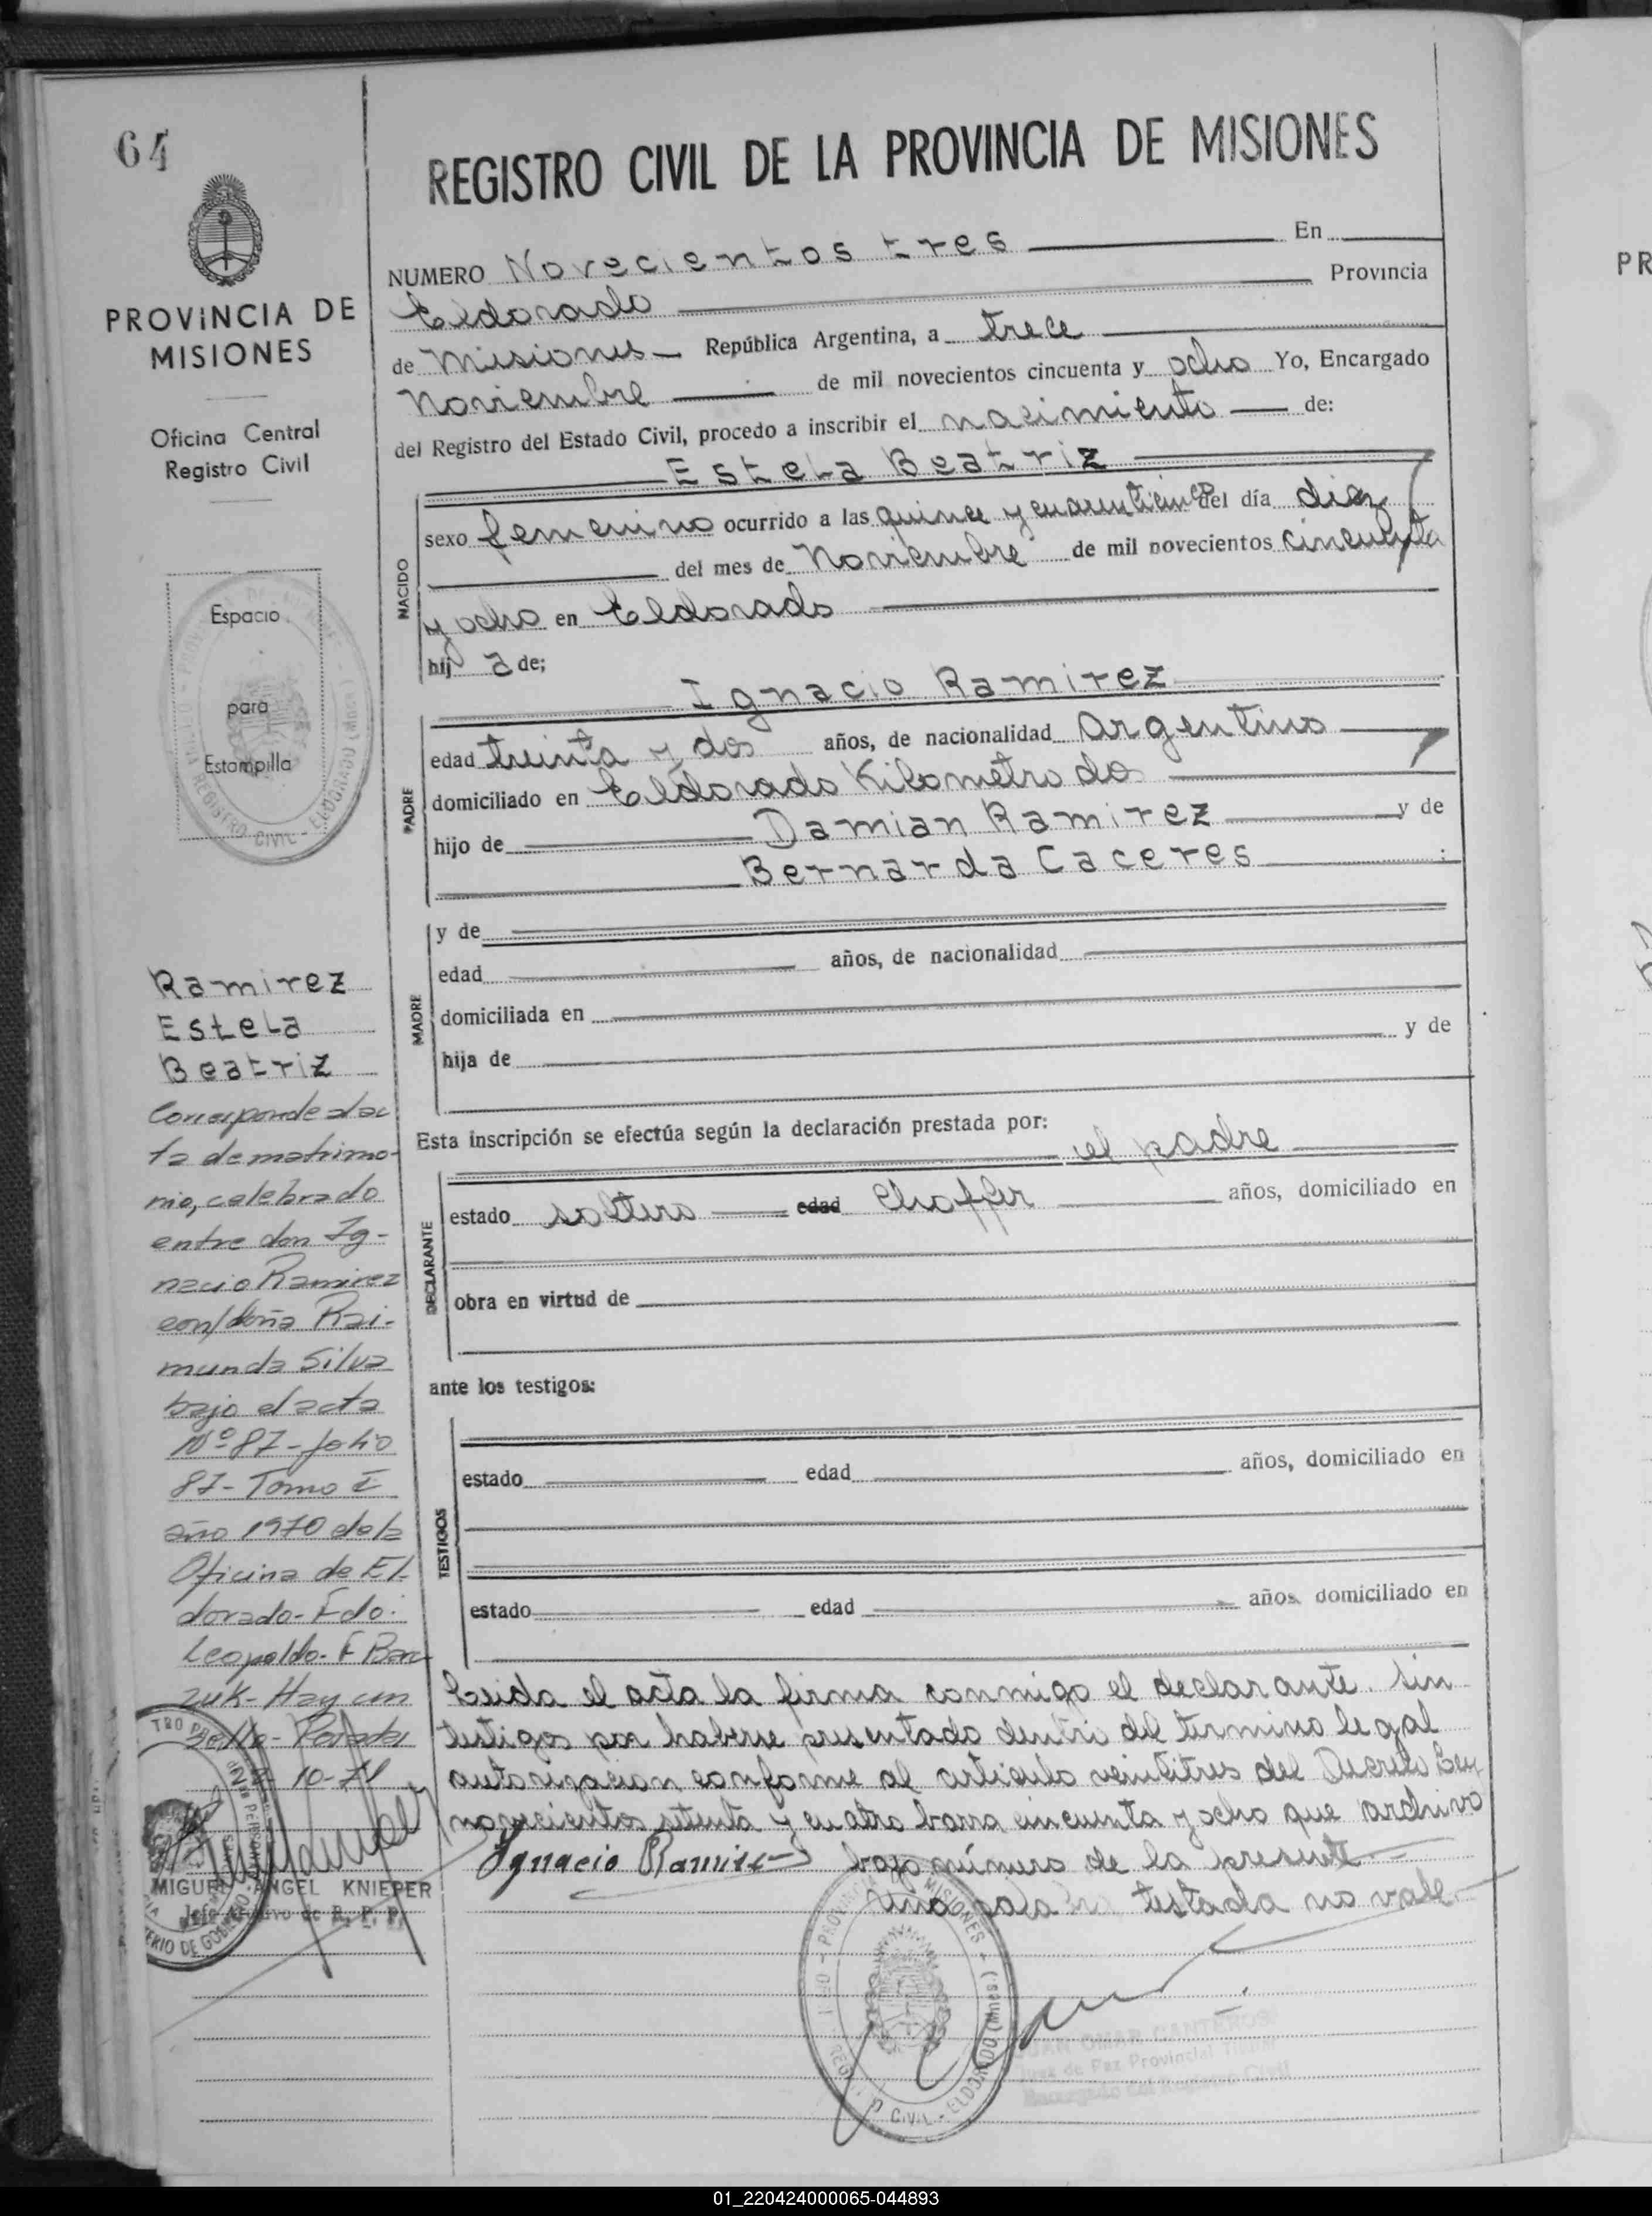 64
REGISTRO CIVIL DE LA PROVINCIA DE MISIONES
PROVINCIA DE
MISIONES
Oficina Central
Registro Civil
NUMERO Novecientos tres En
Eldorado Provincia
de Misiones República Argentina, a trece
Noviembre de mil novecientos cincuenta y ocho Yo, Encargado
del Registro del Estado Civil, procedo a inscribir el nacimiento de:
Estela Beatriz
NACIDO
sexo femenino ocurrido a las quince y cuarenticinco del día diez
del mes de Noviembre de mil novecientos cincuenta
y ocho en Eldorado
hij a de;
Espacio
para
Estampilla
Ignacio Ramirez
PADRE
edad treinta y dos años, de nacionalidad Argentino
domiciliado en Eldorado Kilometro dos
hijo de Damian Ramirez y de
Bernarda Caceres
MADRE
y de
edad años, de nacionalidad
domiciliada en
hija de y de
Esta inscripción se efectúa según la declaración prestada por:
el padre
DECLARANTE
estado soltero edad Choffer años, domiciliado en
obra en virtud de
ante los testigos:
TESTIGOS
estado edad años, domiciliado en
estado edad años, domiciliado en
Leida el acta la firma conmigo el declarante. sin
testigos por haberse presentado dentro del termino legal
autorizacion conforme al articulo veintitres del Decreto Ley
novecientos setenta y cuatro barra cincuenta y ocho que archivo
Ignacio Ramirez bajo número de la presente
Una palabra testada no vale.
Ramirez
Estela
Beatriz
Corresponde al ac
ta de matrimo-
nio, celebrado
entre don Ig-
nacio Ramirez
con/doña Rai-
munda Silva
bajo el acta
Nº 87-folio
87-Tomo I
año 1970 de la
Oficina de El-
dorado-Fdo:
Leopoldo-F Bar
zuk-Hay un
Sello-Posadas
10-71
MIGUEL ANGEL KNIEPER
Jefe Archivo de R. P. P.
PROVINCIA DE MISIONES
REGISTRO CIVIL - ELDORADO (Mnes.)
JUAN OMAR CANTEROS
Juez de Paz Provincial Titular
Encargado del Registro Civil
01_220424000065-044893